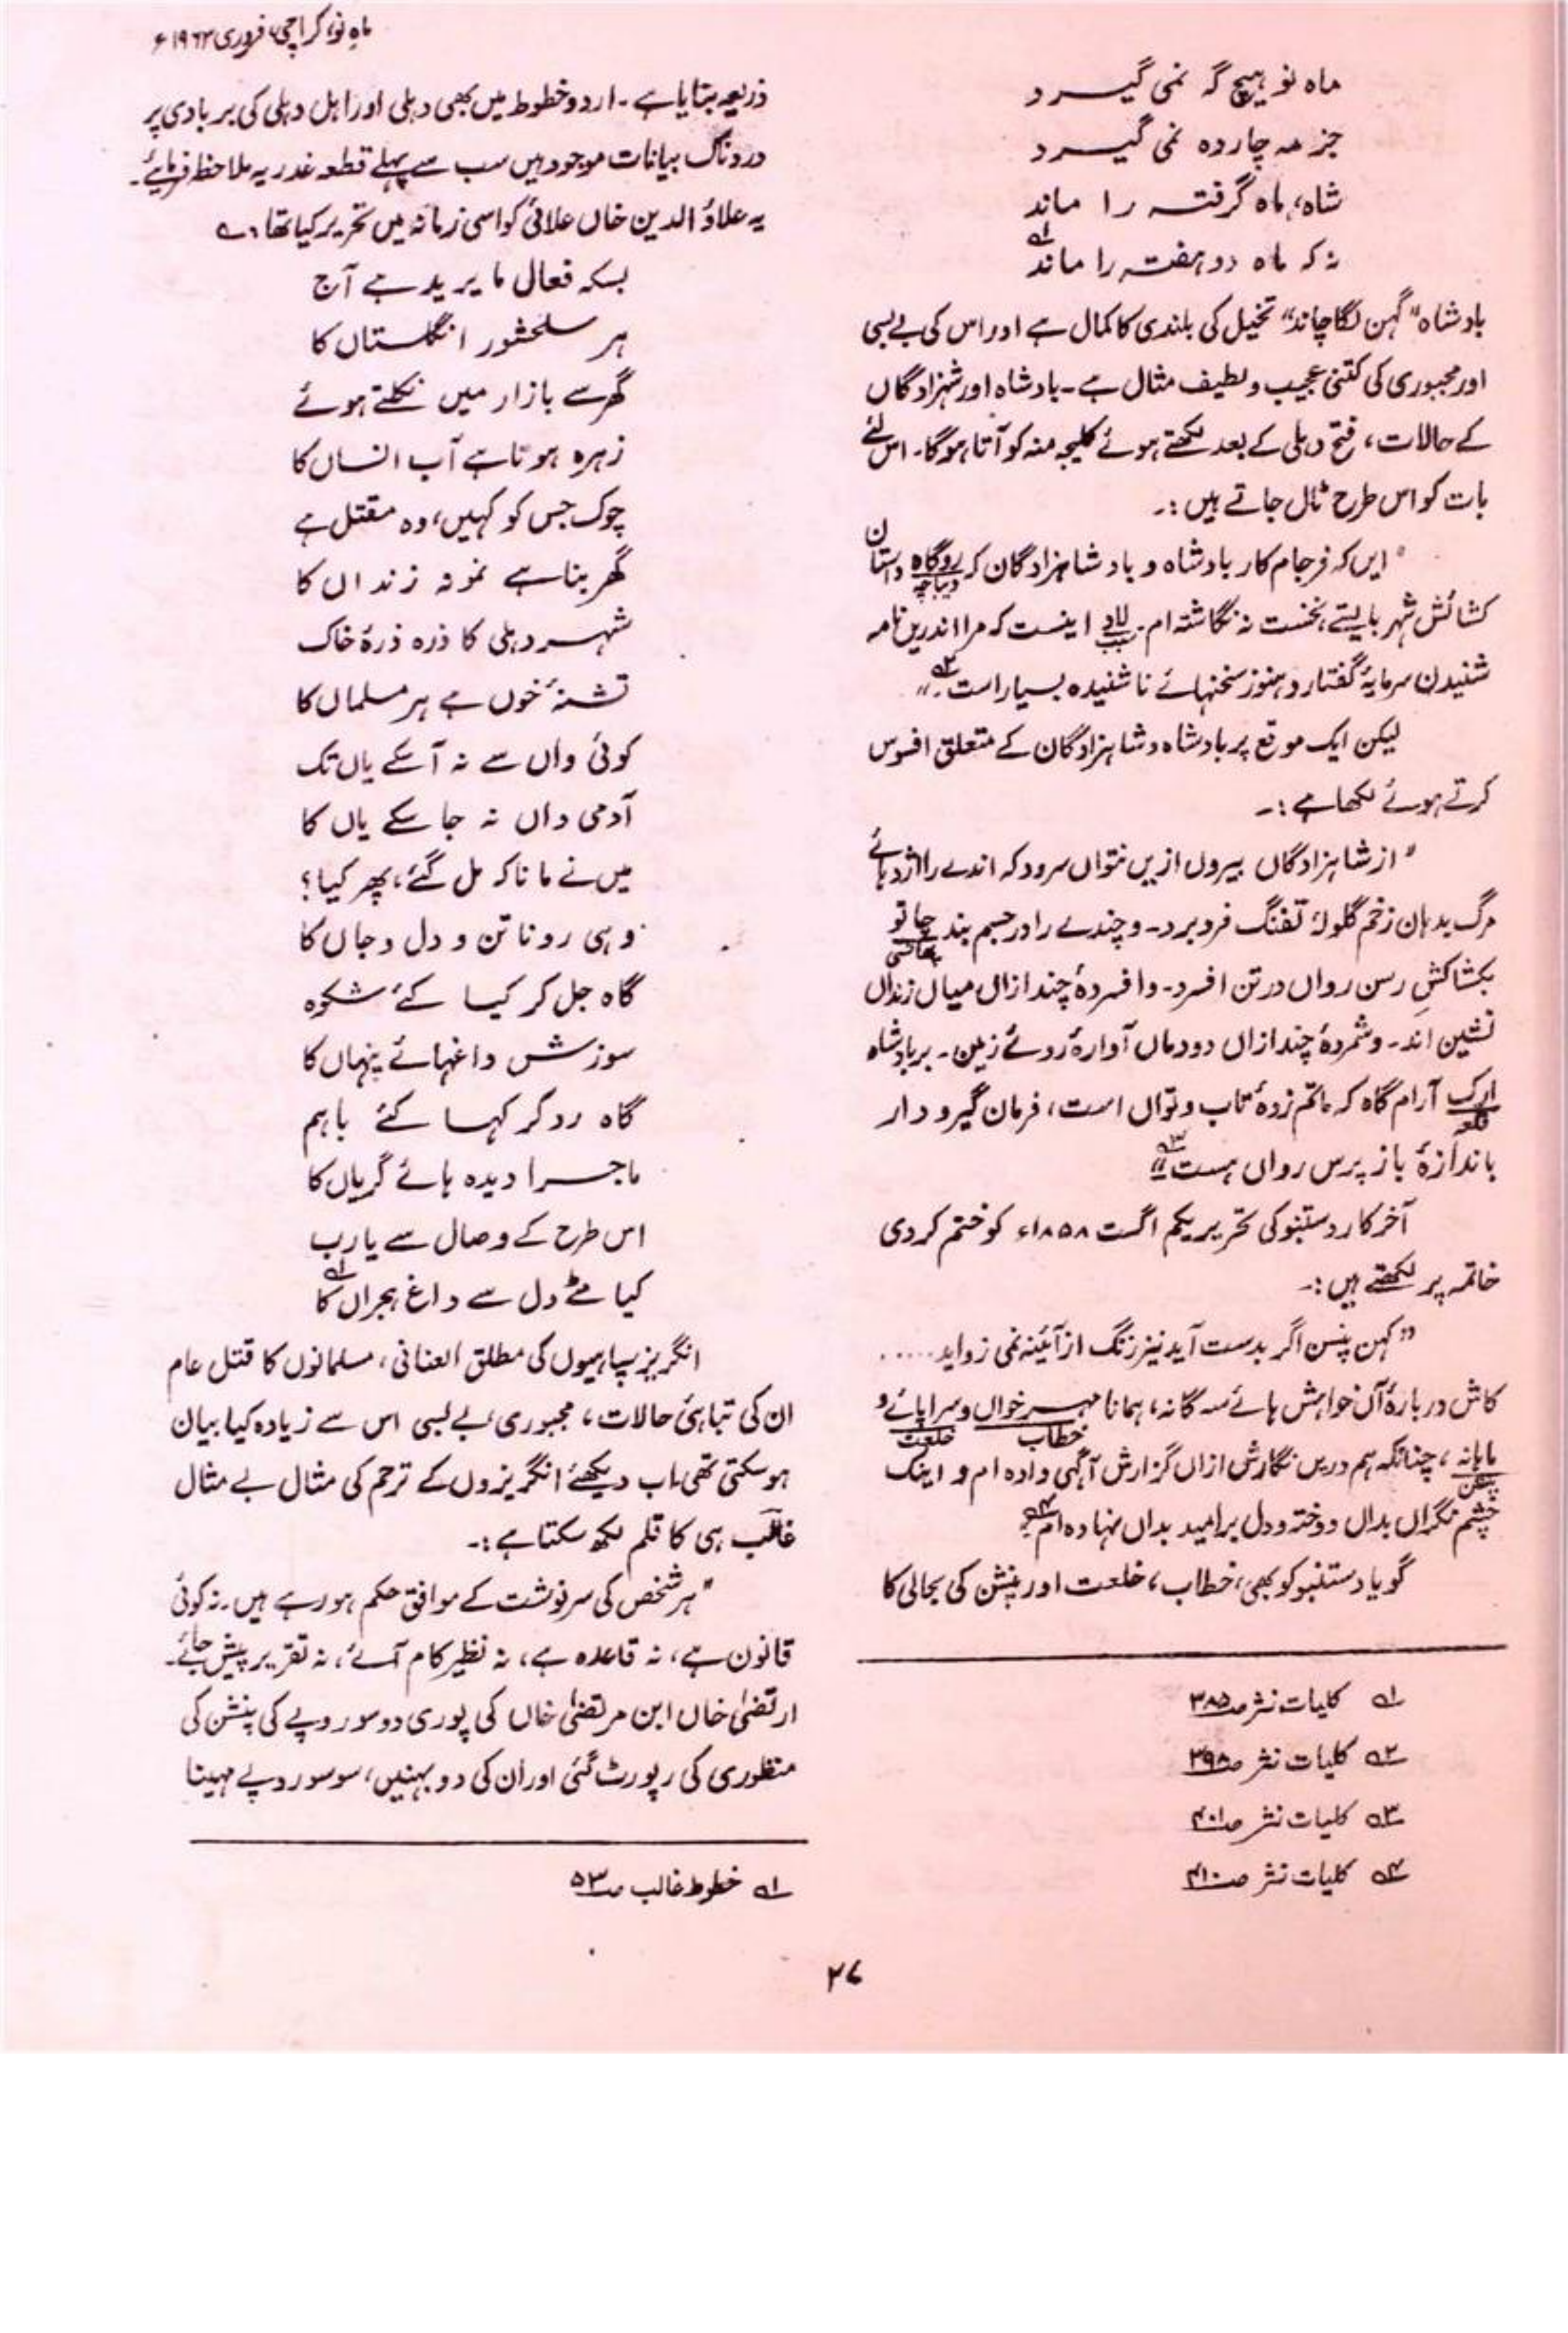 ماہِ نو، کراچی، فروری ۱۹۶۲ء
ماہ نو ہیچ گہ نمی گیرد
جز مہ چاردہ نمی گیرد
شاہ، ماہ گرفتہ را ماند
نہ کہ ماہ دو ہفتہ را ماند ۱؎
بادشاہ "گہن لگا چاند" تخیل کی بلندی کا کمال ہے اور اس کی بے بسی
اور مجبوری کی کتنی عجیب و لطیف مثال ہے۔ بادشاہ اور شہزادگاں
کے حالات، فتح دہلی کے بعد لکھتے ہوئے کلیجہ منہ کو آتا ہوگا۔ اس لئے
بات کو اس طرح ٹال جاتے ہیں:۔
"ایں کہ فرجام کار بادشاہ و بادشاہزادگان کہ روگاہ داستان
دیباچہ
کشائش شہر بایستے، نخست نہ نگاشتہ ام۔ لاد اینست کہ مرا اندریں نامہ
سبب
شنیدن سرمایۂ گفتار و ہنوز سخنہائے ناشنیدہ بسیار است ۲؎۔"
لیکن ایک موقع پر بادشاہ و شاہزادگان کے متعلق افسوس
کرتے ہوئے لکھا ہے:۔
"از شاہزادگاں بیروں ازیں نتواں سرود کہ اندے را اژدہائے
مرگ بدہان زخم گلولۂ تفنگ فرو برد۔ و چندے را در جسم بند چاتو
پھانسی
بکشاکشِ رسن رواں در تن افسرد۔ و افسردۂ چند ازاں میاں زنداں
نشین اند۔ و شمردۂ چند ازاں دودماں آوارۂ روئے زمین۔ بر بادشاہ
ارک آرام گاہ کہ ماتم زدۂ تاب و تواں است، فرمان گیر و دار
قلعہ
باندازۂ باز پرس رواں ہست ۳؎"
آخرکار دستنبو کی تحریر یکم اگست ۱۸۵۸ء کو ختم کر دی
خاتمہ پر لکھتے ہیں:۔
"کہن پنسن اگر بدست آید نیز زنگ از آئینہ نمی زواید.....
کاش دربارۂ آں خواہش ہائے سہ گانہ، ہمانا مہر خواں و سراپائے و
خطاب خلعت
ماہانہ، چنانکہ ہم دریں نگارش ازاں گزارش آگہی دادہ ام و اینک
پنشن
چشم نگراں بداں دوختہ و دل بر امید بداں نہادہ ام ۴؎"
گویا دستنبو کو بھی، خطاب، خلعت اور پنشن کی بحالی کا
۱؎ کلیات نثر صـ۳۸۵
۲؎ کلیات نثر صـ۳۹۸
۳؎ کلیات نثر صـ۴۰۱
۴؎ کلیات نثر صـ۴۱۰
ذریعہ بتایا ہے۔ اردو خطوط میں بھی دہلی اور اہل دہلی کی بربادی پر
دردناک بیانات موجود ہیں سب سے پہلے قطعہ غدریہ ملاحظہ فرمائیے۔
یہ علاؤ الدین خاں علائی کو اسی زمانہ میں تحریر کیا تھا ؎
بسکہ فعال ما یرید ہے آج
ہر سلحشور انگلستاں کا
گھر سے بازار میں نکلتے ہوئے
زہرہ ہوتا ہے آب انساں کا
چوک جس کو کہیں، وہ مقتل ہے
گھر بنا ہے نمونہ زنداں کا
شہر دہلی کا ذرہ ذرۂ خاک
تشنۂ خوں ہے ہر مسلماں کا
کوئی واں سے نہ آسکے یاں تک
آدمی واں نہ جاسکے یاں کا
میں نے مانا کہ مل گئے، پھر کیا؟
وہی رونا تن و دل و جاں کا
گاہ جل کر کیا کئے شکوہ
سوزش داغہائے پنہاں کا
گاہ رو کر کہا کئے باہم
ماجرا دیدہ ہائے گریاں کا
اس طرح کے وصال سے یارب
کیا مٹے دل سے داغ ہجراں کا ۱؎
انگریز سپاہیوں کی مطلق العنانی، مسلمانوں کا قتل عام
ان کی تباہیٔ حالات، مجبوری، بے بسی اس سے زیادہ کیا بیان
ہوسکتی تھی۔ اب دیکھئے انگریزوں کے ترحم کی مثال بے مثال
غالب ہی کا قلم لکھ سکتا ہے:۔
"ہر شخص کی سرنوشت کے موافق حکم ہو رہے ہیں۔ نہ کوئی
قانون ہے، نہ قاعدہ ہے، نہ نظیر کام آئے، نہ تقریر پیش جائے۔
ارتضیٰ خاں ابن مرتضیٰ خاں کی پوری دو سو روپے کی پنشن کی
منظوری کی رپورٹ گئی اور ان کی دو بہنیں، سو سو روپے مہینا
۱؎ خطوط غالب صـ۵۳
۲۷